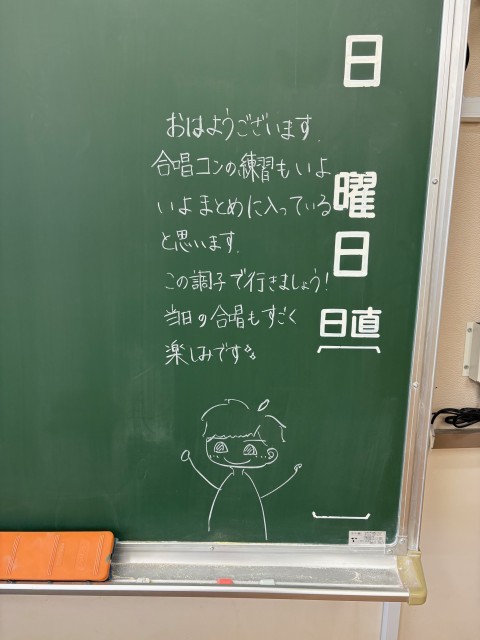 日
曜
日
日直
おはようございます.
合唱コンの練習もいよ
いよまとめに入っている
と思います.
この調子で行きましょう!
当日の合唱もすごく
楽しみです